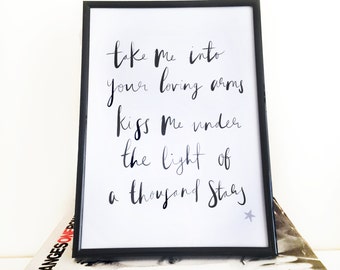 take me into
your loving arms
kiss me under
the light of
a thousand stars
ANGESONE